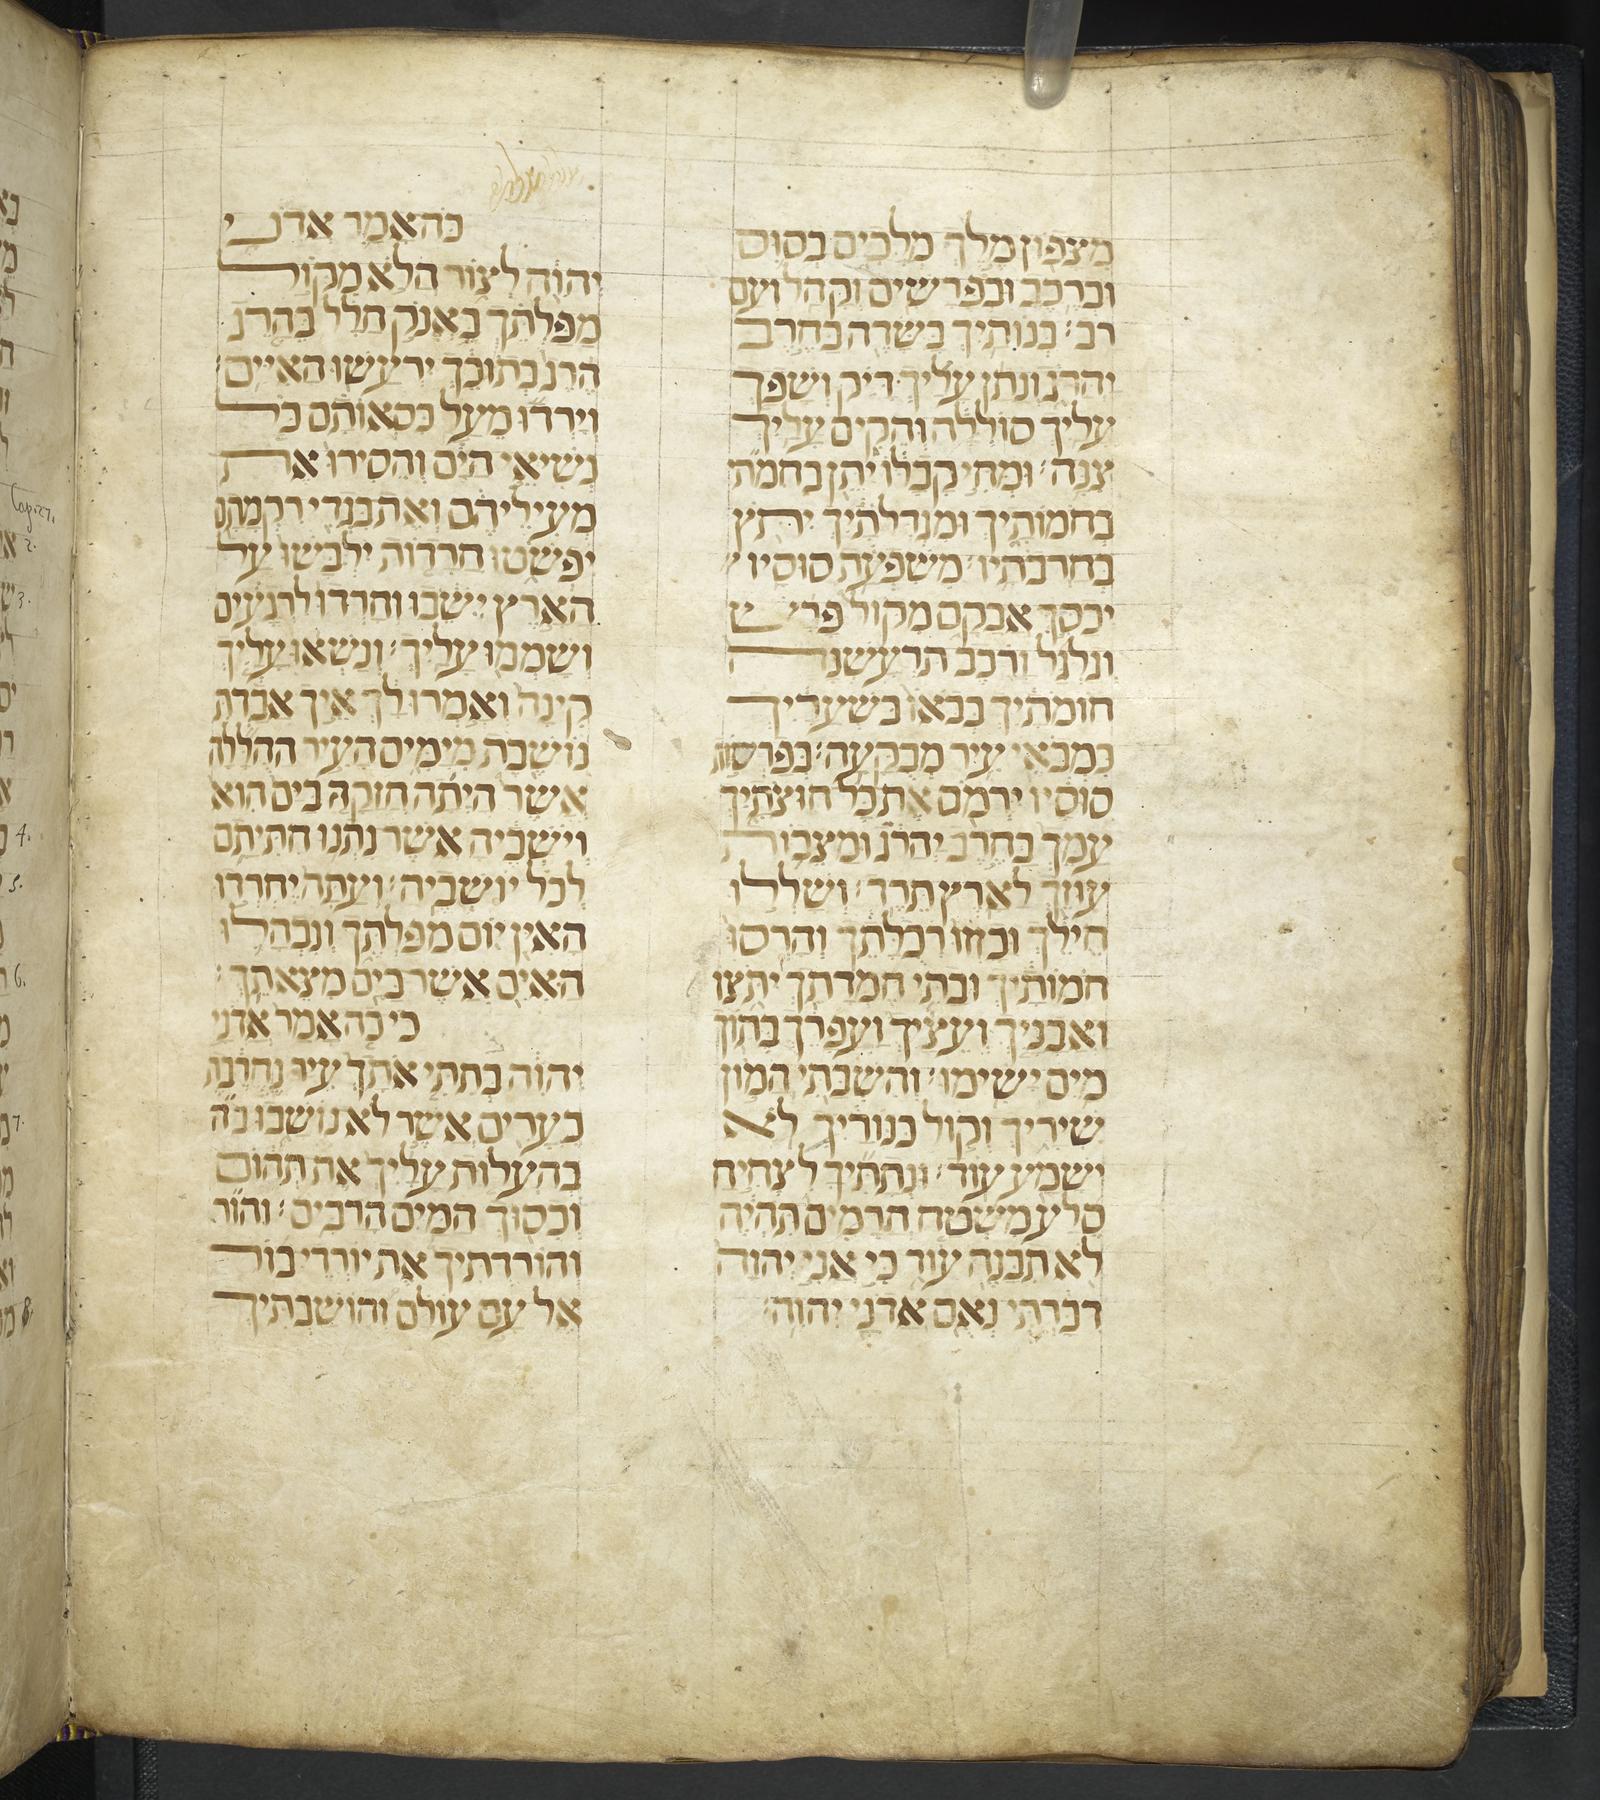 מצפון מלך מלכים בסוס
וברכב ובפרשים וקהל ועם
רב׃ בנותיך בשדה בחרב
יהרג ונתן עליך דיק ושפך
עליך סוללה והקים עליך
צנה׃ ומחי קבלו יתן בחמת
בחמותיך ומגדלתיך יתץ
בחרבתיו׃ משפעת סוסיו
יכסך אבקם מקול פרש
וגלגל ורכב תרעשנה
חומתיך בבאו בשעריך
כמבאי עיר מבקעה׃ בפרסות
סוסיו ירמס את כל חוצתיך
עמך בחרב יהרג ומצבות
עוזך לארץ תרד׃ ושללו
חילך ובזזו רכלתך והרסו
חמותיך ובתי חמדתך יתצו
ואבניך ועציך ועפרך בתוך
מים ישימו׃ והשבתי המון
שיריך וקול כנוריך לא
ישמע עוד׃ ונתתיך לצחיח
סלע משטח חרמים תהיה
לא תבנה עוד כי אני יהוה
דברתי נאם אדני יהוה׃
כה אמר אדני
יהוה לצור הלא מקול
מפלתך באנק חלל בהרג
הרג בתוכך ירעשו האיים׃
וירדו מעל כסאותם כל
נשיאי הים והסירו את
מעיליהם ואת בגדי רקמתם
יפשטו חרדות ילבשו על
הארץ ישבו וחרדו לרגעים
ושממו עליך׃ ונשאו עליך
קינה ואמרו לך איך אבדת
נושבת מימים העיר ההללה
אשר היתה חזקה בים הוא
וישביה אשר נתנו חתיתם
לכל יושביה׃ ועתה יחרדו
האין יום מפלתך ונבהלו
האים אשר בים מצאתך׃
כי כה אמר אדני
יהוה בתתי אתך עיר נחרבת
כערים אשר לא נושבו בה
בהעלות עליך את תהום
וכסוך המים הרבים׃ והור
והורדתיך את יורדי בור
אל עם עולם והושבתיך
Cap. 27.
2.
3.
4.
5.
6.
7.
8.